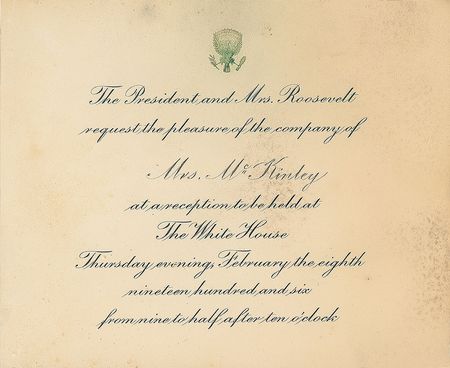 The President and Mrs. Roosevelt
request the pleasure of the company of
Mrs. McKinley
at a reception to be held at
The White House
Thursday evening, February the eighth
nineteen hundred and six
from nine to half after ten o'clock